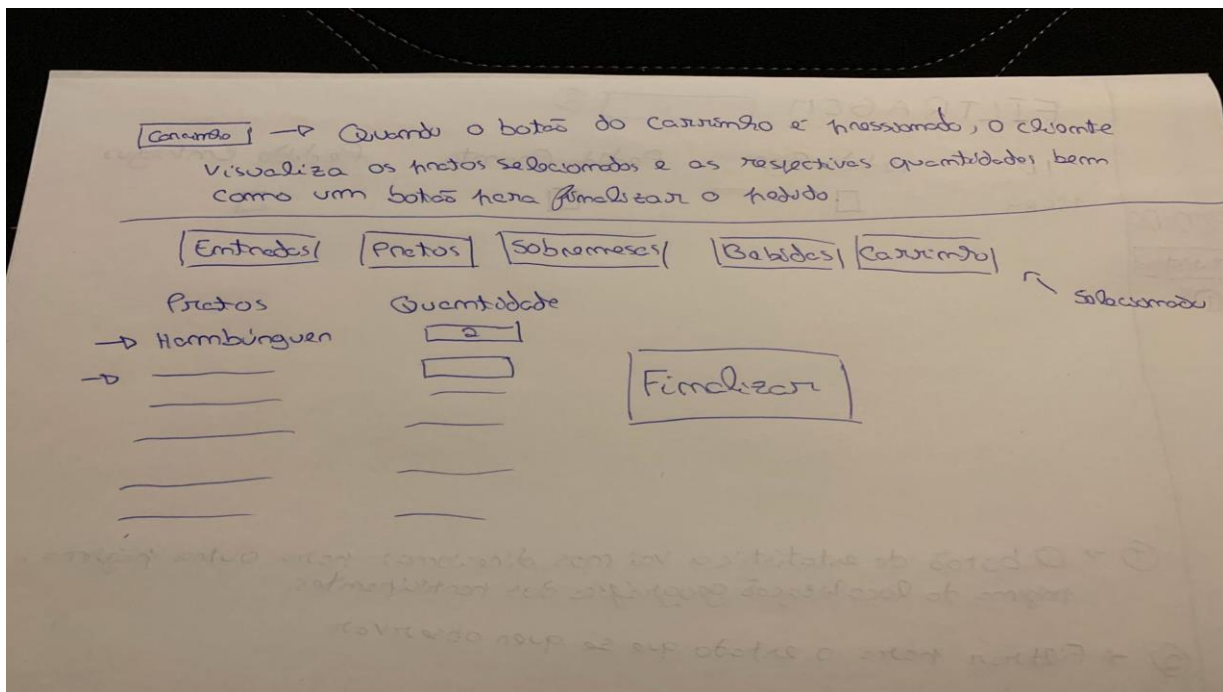 Carrinho → Quando o botão do carrinho é pressionado, o cliente
visualiza os pratos selecionados e as respectivas quantidades, bem
como um botão para finalizar o pedido.
Entradas Pratos Sobremesas Bebidas Carrinho
Selecionado
Pratos Quantidade
→ Hambúrguer 2
→
Finalizar